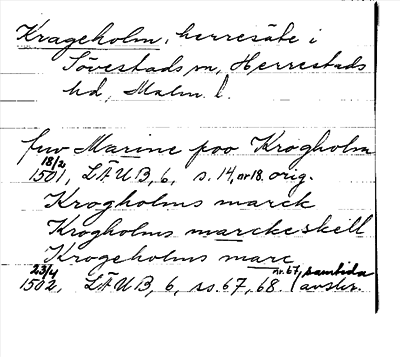 Krageholm, herresäte i
Sövestads sn, Herrestads
hd, Malm. l.
fruv Marine poo Krogholm
18/2
1501, LÄUB, 6, s. 14, nr 18. orig.
Krogholms marck
Krogholms marckeskell
Krogeholms marc
23/4 nr. 67, samtida
1502, LÄUB, 6, ss. 67, 68. (avskr.